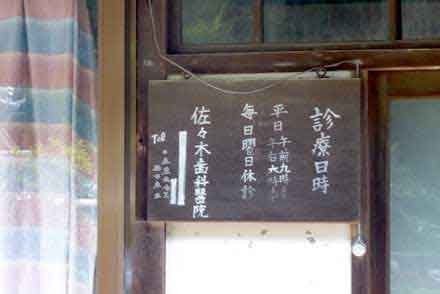 診療日時
平日 午前九時
午后六時
毎日曜日休診
佐々木歯科醫院
Tel